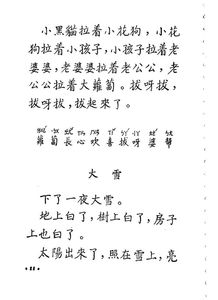 小黑貓拉着小花狗，小花
狗拉着小孩子，小孩子拉着老
婆婆，老婆婆拉着老公公，老
公公拉着大蘿蔔。拔呀拔，
拔呀拔，拔起來了。
蘿蔔長心吹喜拔呀婆幫
大雪
下了一夜大雪。
地上白了，樹上白了，房子
上也白了。
太陽出來了，照在雪上，亮